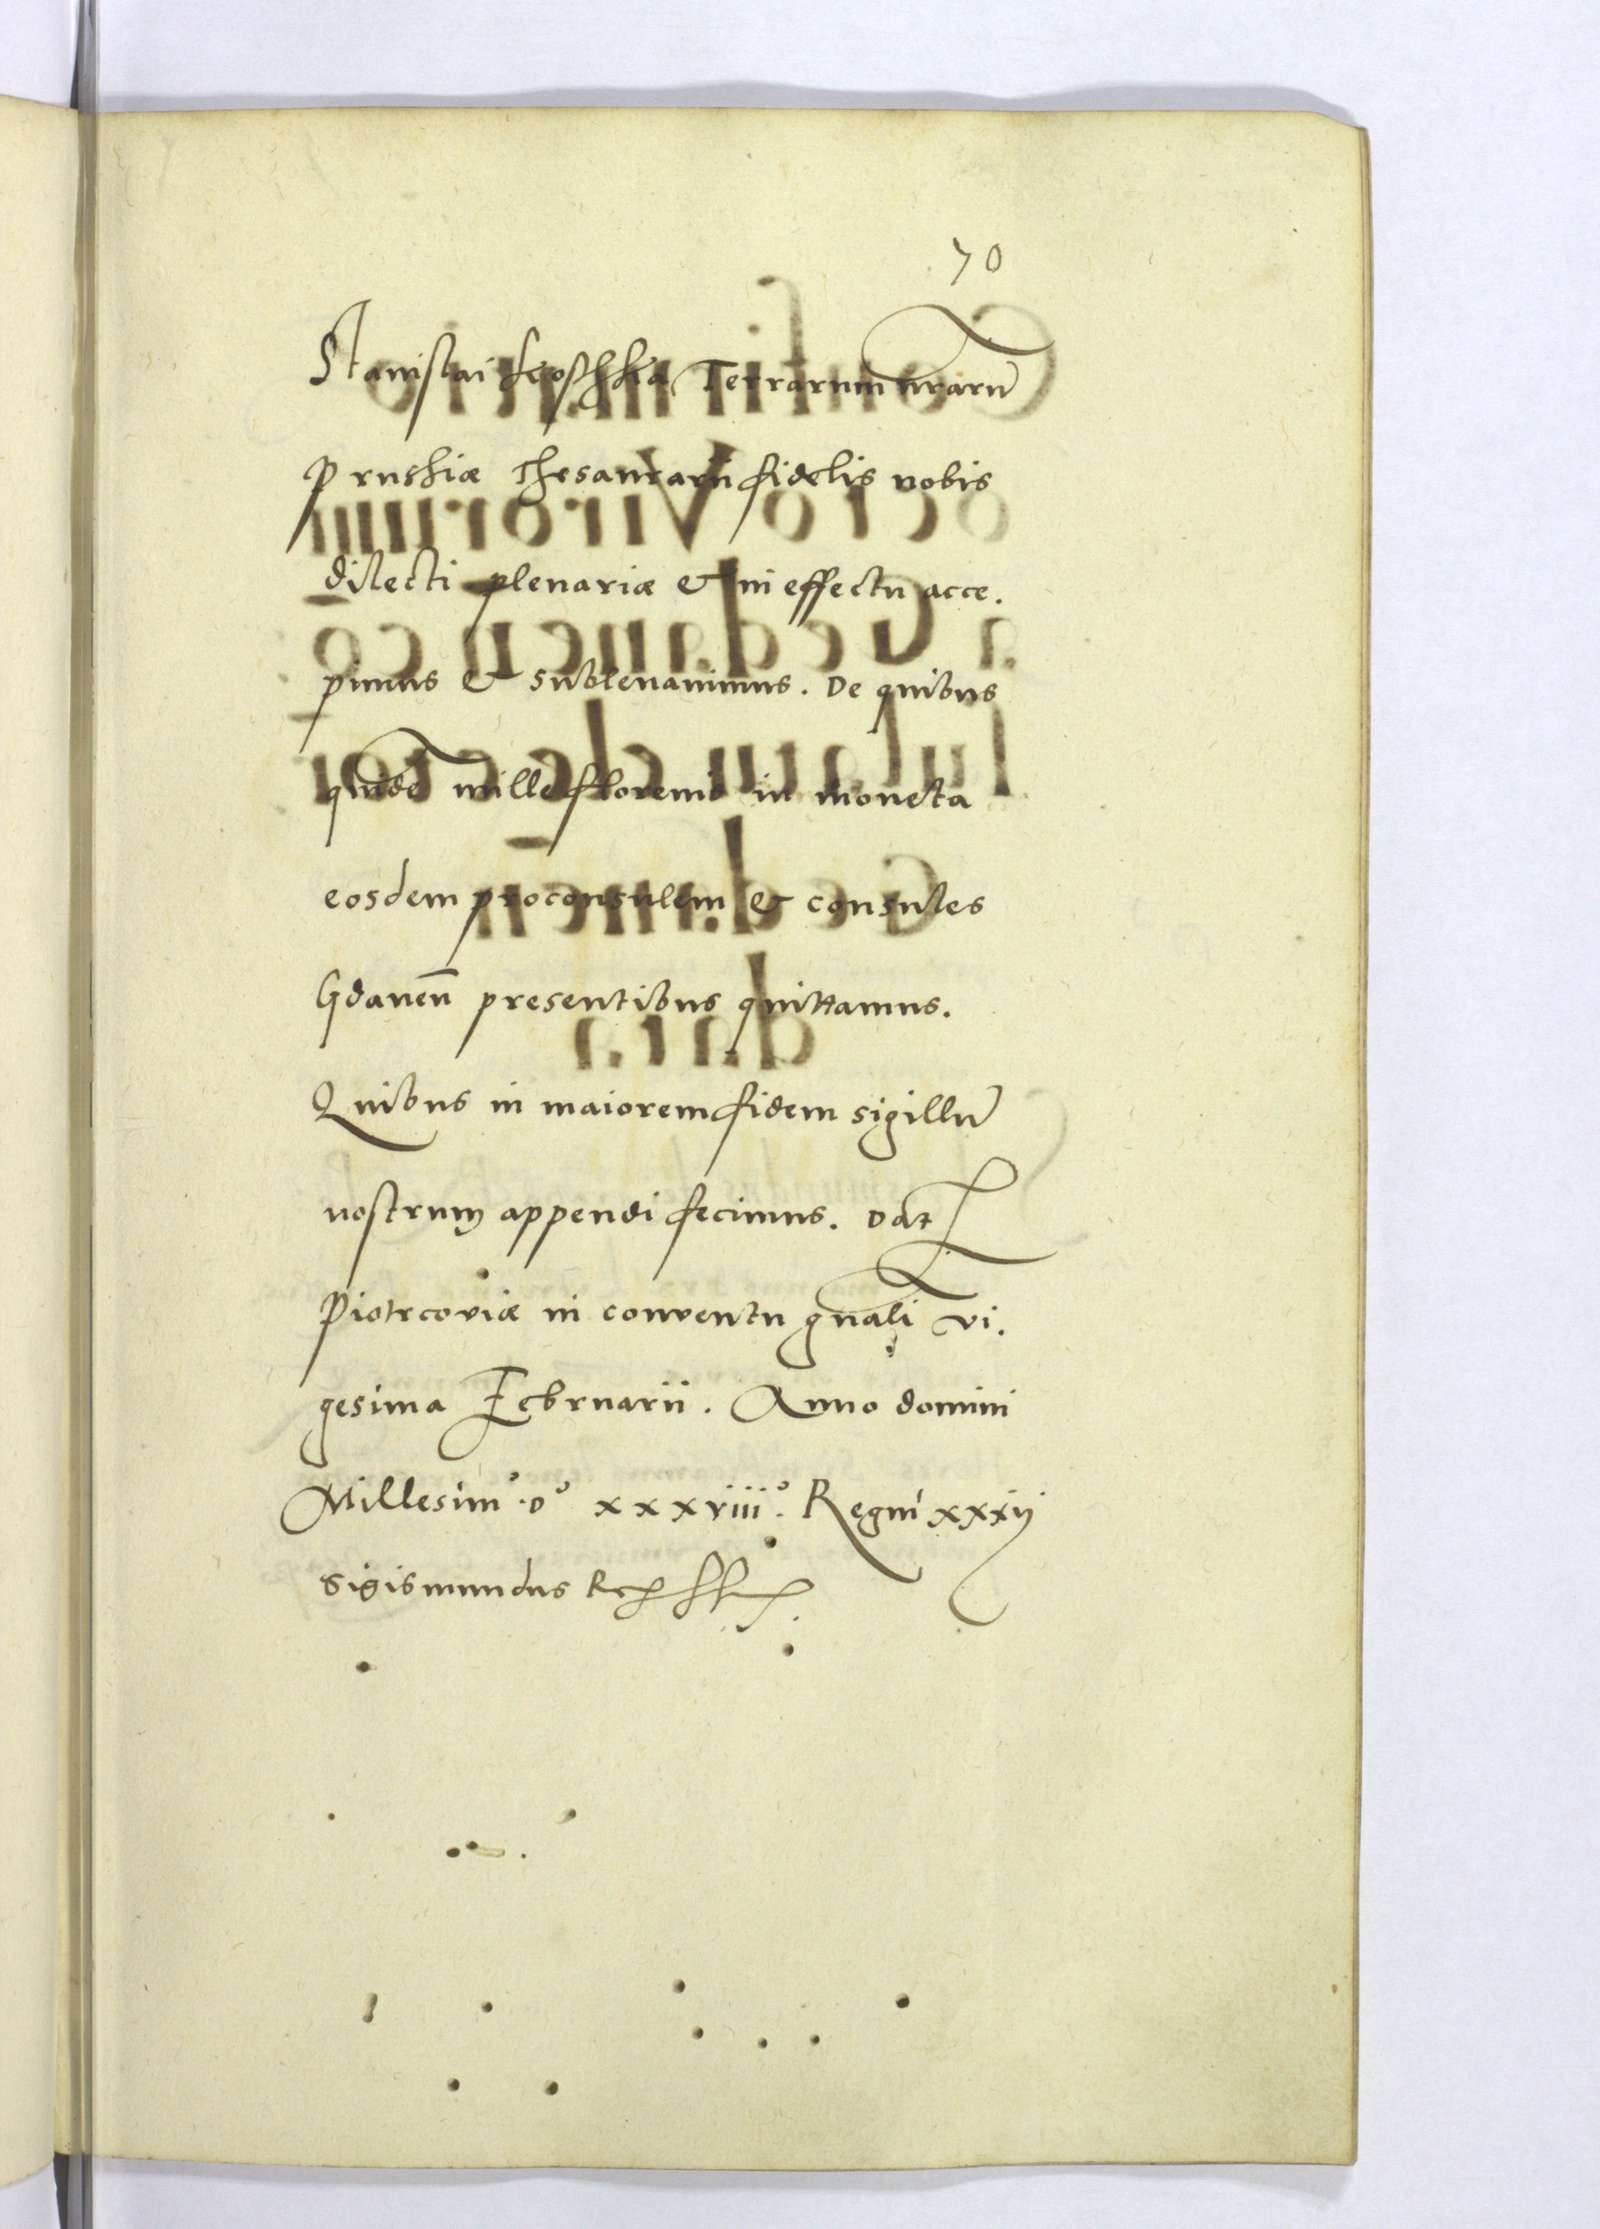 70
Stanislai Koſthka Terrarum nrarū
Prusſiæ Thesaurarii fidelis nobis
dilecti plenariæ & in effectu acce.
pimus & subleuauimus. De quibus
quidē mille florenis in moneta
eosdem proconsulem & consules
Gdaneñ presentibus quittamus.
Quibus in maiorem fidem sigillū
noſtrum appendi fecimus. Dat
Piotrcoviæ in conventu gnali vi.
gesima Februarii. Anno domini
Millesimº. Dº xxxviiiº. Regni xxxij
Sigismundus Rex ſſt